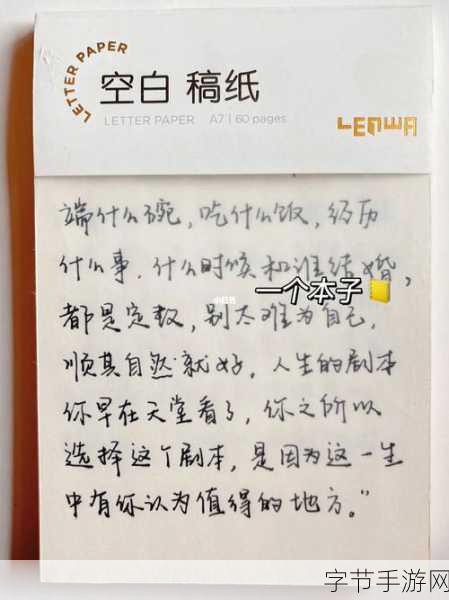 LETTER PAPER
空白 稿纸
LETTER PAPER A7 | 60 pages
LENWA
端什么碗，吃什么饭，经历
什么事，什么时候和谁结婚，
一个本子
小红书
都是定数，别太难为自己，
顺其自然就好，人生的剧本
你早在天堂看了，你之所以
选择这个剧本，是因为这一生
中有你认为值得的地方。”
字节手游网